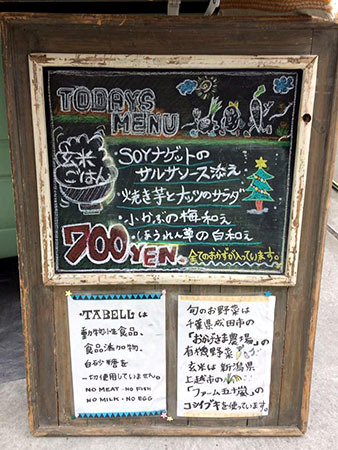 TODAYS
MENU
玄米
ごはん
・SOYナゲットの
サルサソース添え
・焼き芋とナッツのサラダ
・小かぶの梅和え
・ほうれん草の白和え
700YEN
全てのおかずが入っています。
・TABELLは
動物性食品、
食品添加物、
白砂糖を
一切使用していません。
NO MEAT・NO FISH
NO MILK・NO EGG
旬のお野菜は
千葉県成田市の
「おかげさま農場」の
有機野菜
玄米は新潟県
上越市の
「ファーム五十嵐」の
コシイブキを使っています。